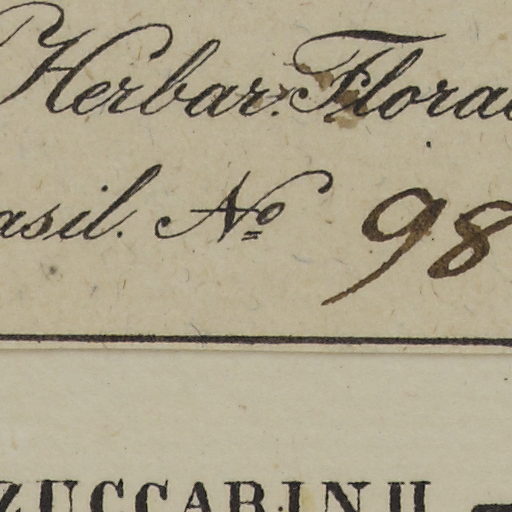 Herbar. Florae
asil. No 98
ZUCCARINII